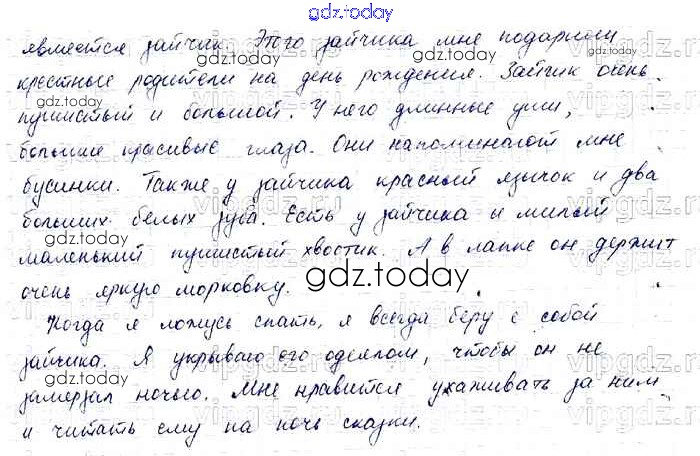 gdz.today
является зайчик. Этого зайчика мне подарили
gdz.today
крестные родители на день рождения. Зайчик очень
gdz.today
пушистый и большой. У него длинные уши,
большие красивые глаза. Они напоминают мне
бусинки. Также у зайчика красный язычок и два
больших белых зуба. Есть у зайчика и милый
gdz.today
маленький пушистый хвостик. А в лапке он держит
очень яркую морковку.
gdz.today
Когда я ложусь спать, я всегда беру с собой
зайчика. Я укрываю его одеялом, чтобы он не
gdz.today
замерзал ночью. Мне нравится ухаживать за ним
и читать ему на ночь сказки.